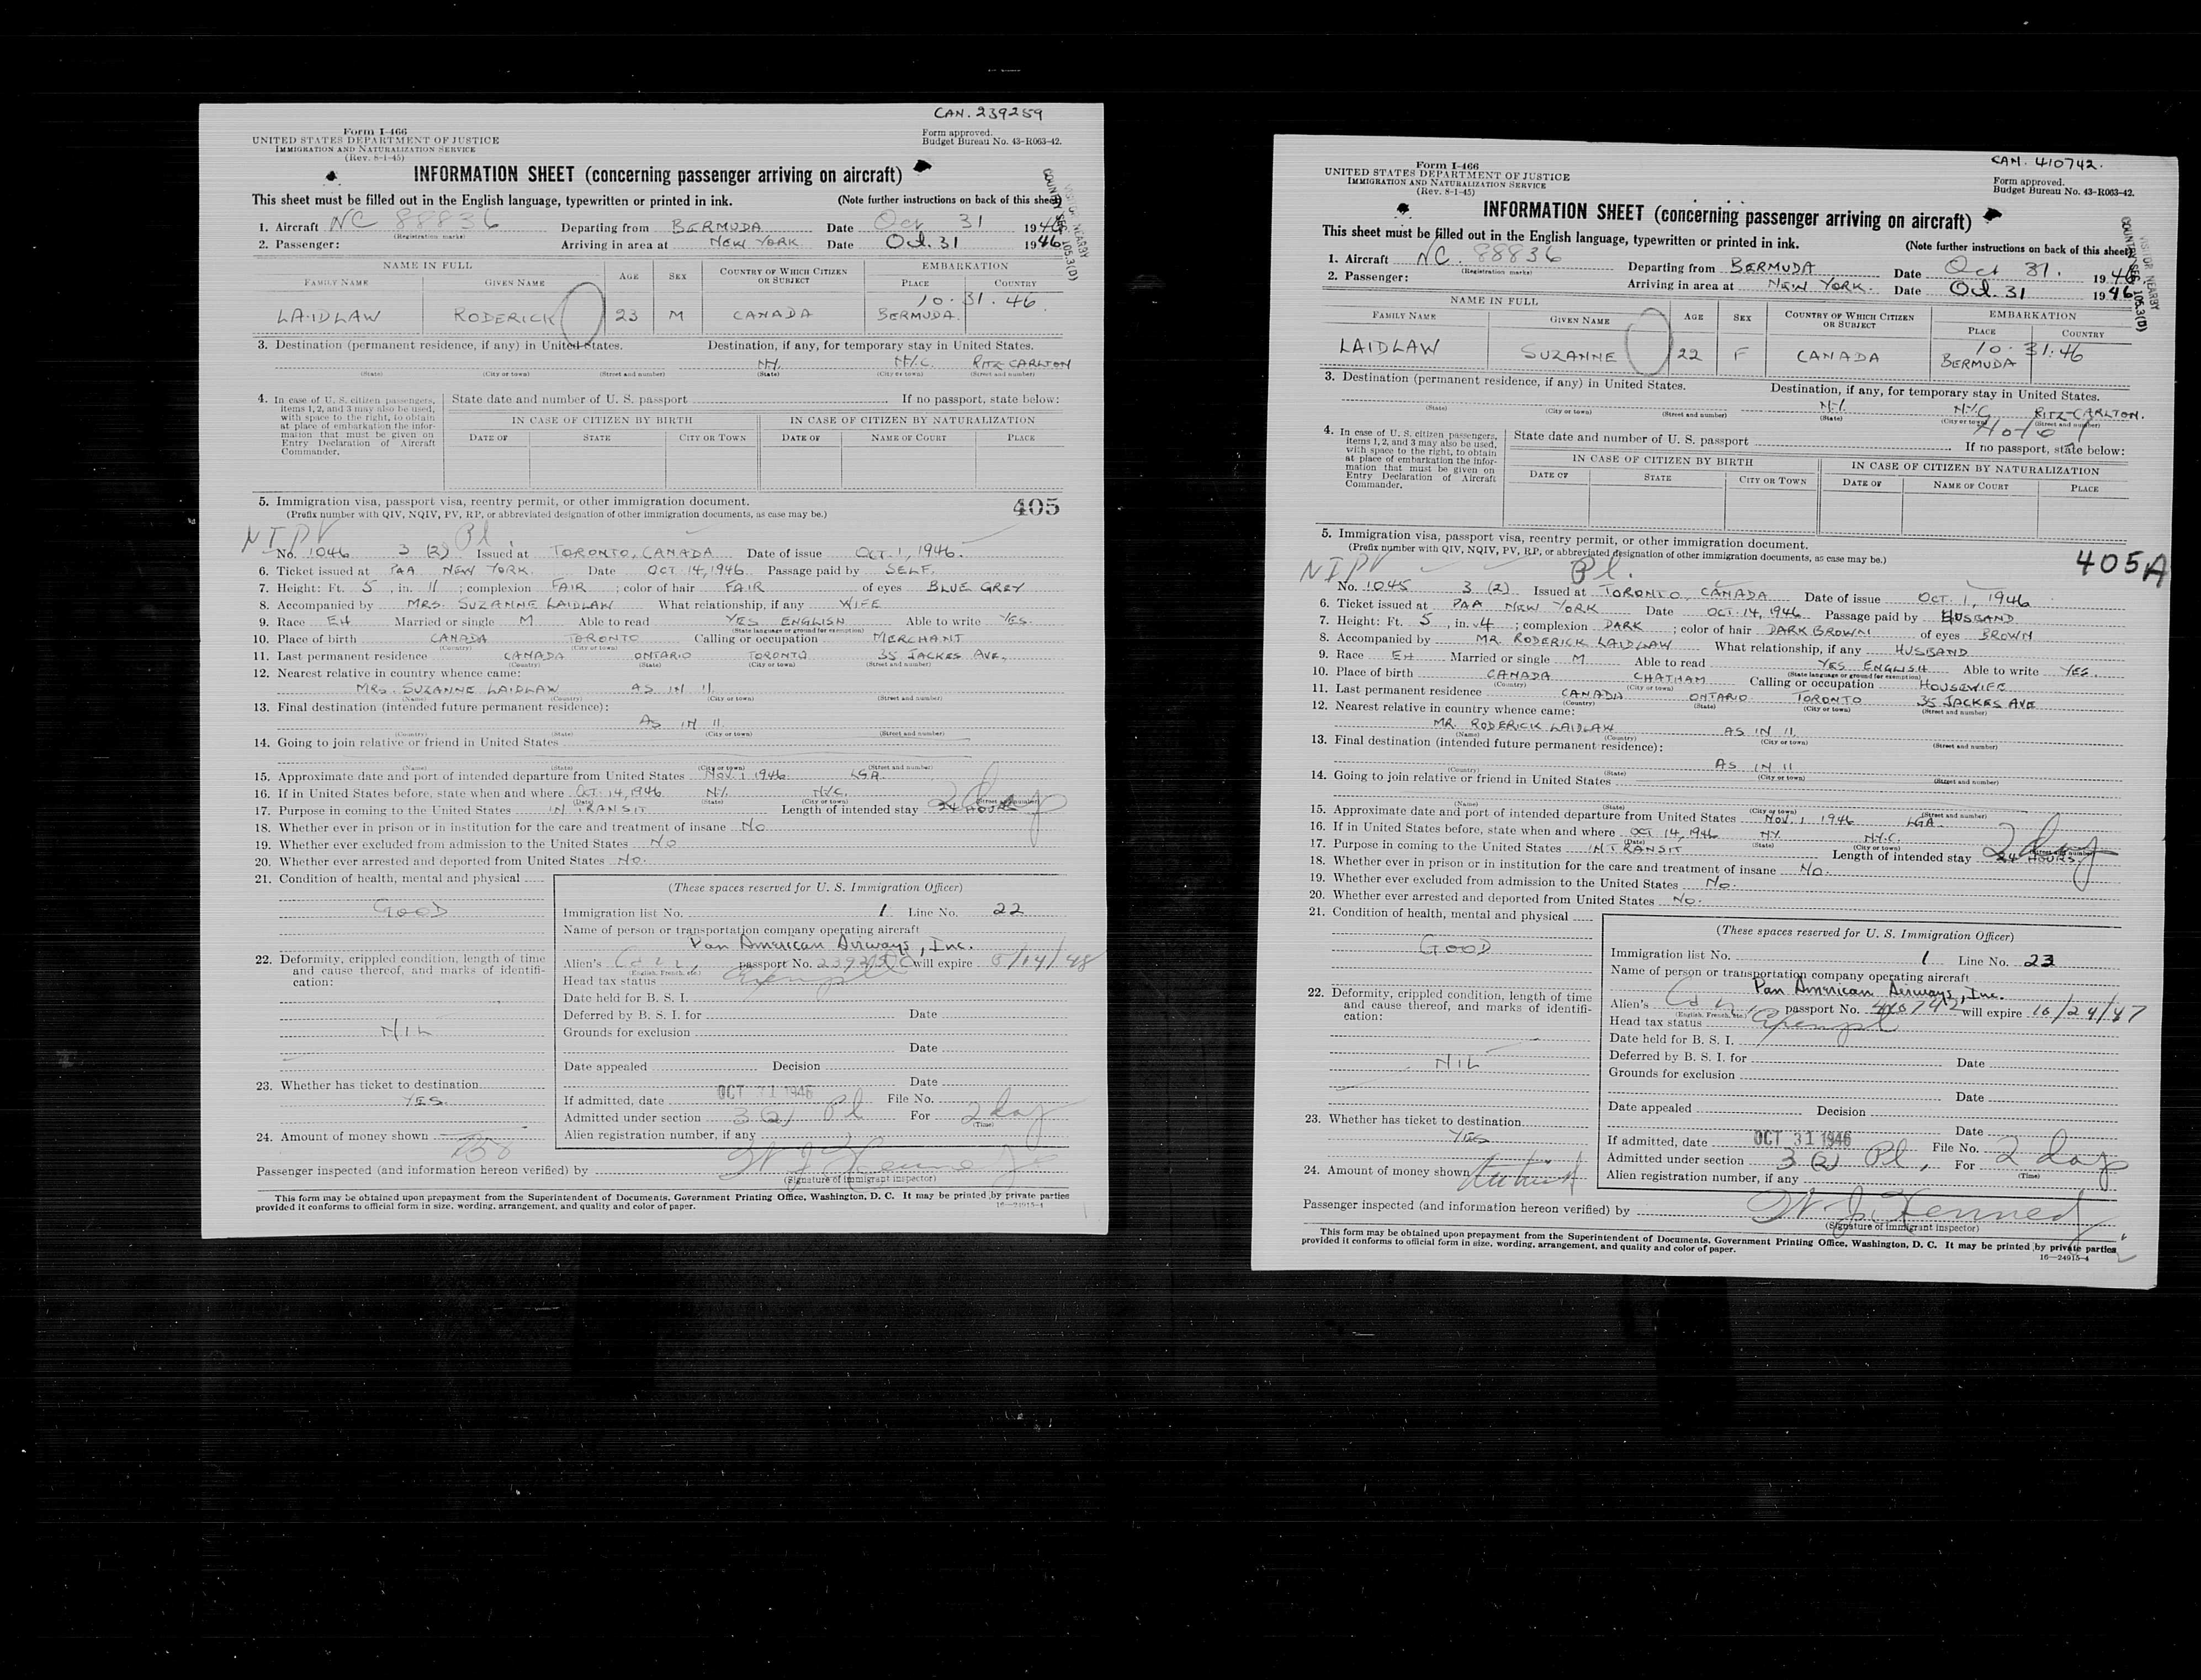 CAN. 239259
Form I-466
UNITED STATES DEPARTMENT OF JUSTICE
IMMIGRATION AND NATURALIZATION SERVICE
(Rev. 8-1-45)
Form approved.
Budget Bureau No. 43-R063-42.
INFORMATION SHEET (concerning passenger arriving on aircraft)
This sheet must be filled out in the English language, typewritten or printed in ink. (Note further instructions on back of this sheet)
1. Aircraft NC 88836 Departing from BERMUDA Date Oct 31 1946
(Registration marks)
2. Passenger: Arriving in area at NEW YORK Date Oct. 31 1946
NAME IN FULL AGE SEX COUNTRY OF WHICH CITIZEN OR SUBJECT EMBARKATION
FAMILY NAME GIVEN NAME PLACE COUNTRY
10-31-46
LAIDLAW RODERICK 23 M CANADA BERMUDA.
3. Destination (permanent residence, if any) in United States. Destination, if any, for temporary stay in United States.
N.Y. N.Y.C. RITZ CARLTON
(State) (City or town) (Street and number) (State) (City or town) (Street and number)
4. In case of U. S. citizen passengers, items 1, 2, and 3 may also be used, with space to the right, to obtain at place of embarkation the information that must be given on Entry Declaration of Aircraft Commander.
State date and number of U. S. passport If no passport, state below:
IN CASE OF CITIZEN BY BIRTH IN CASE OF CITIZEN BY NATURALIZATION
DATE OF STATE CITY OR TOWN DATE OF NAME OF COURT PLACE
5. Immigration visa, passport visa, reentry permit, or other immigration document. 405
(Prefix number with QIV, NQIV, PV, RP, or abbreviated designation of other immigration documents, as case may be.)
NIPV Pl.
No. 1046 3 (2) Issued at TORONTO, CANADA Date of issue OCT. 1, 1946.
6. Ticket issued at PAA NEW YORK. Date OCT 14, 1946 Passage paid by SELF.
7. Height: Ft. 5, in. 11; complexion FAIR; color of hair FAIR of eyes BLUE GREY
8. Accompanied by MRS. SUZANNE LAIDLAW What relationship, if any WIFE
9. Race EH Married or single M Able to read YES ENGLISH Able to write YES.
(State language or ground for exemption)
10. Place of birth CANADA TORONTO Calling or occupation MERCHANT
(Country) (City or town)
11. Last permanent residence CANADA ONTARIO TORONTO 35 JACKES AVE,
(Country) (State) (City or town) (Street and number)
12. Nearest relative in country whence came:
MRS. SUZANNE LAIDLAW AS IN 11.
(Name) (Country) (City or town) (Street and number)
13. Final destination (intended future permanent residence):
AS IN 11.
(Country) (State) (City or town) (Street and number)
14. Going to join relative or friend in United States
(Name) (State) (City or town) (Street and number)
15. Approximate date and port of intended departure from United States NOV. 1 1946 LGA.
16. If in United States before, state when and where OCT. 14, 1946 N.Y. N.Y.C.
(Date) (State) (City or town) (Street and number)
17. Purpose in coming to the United States IN TRANSIT Length of intended stay 24 HOURS 2 day
18. Whether ever in prison or in institution for the care and treatment of insane NO
19. Whether ever excluded from admission to the United States NO
20. Whether ever arrested and deported from United States NO.
21. Condition of health, mental and physical
GOOD
22. Deformity, crippled condition, length of time and cause thereof, and marks of identification:
NIL
23. Whether has ticket to destination
YES.
24. Amount of money shown
(These spaces reserved for U. S. Immigration Officer)
Immigration list No. 1 Line No. 22
Name of person or transportation company operating aircraft
Pan American Airways, Inc.
Alien's Cdn, passport No. will expire
(English, French, etc.)
Head tax status Exempt
Date held for B. S. I.
Deferred by B. S. I. for Date
Grounds for exclusion
Date
Date appealed Decision
Date
If admitted, date OCT 31 1946 File No.
Admitted under section 3(2) Pl For 2 day
(Time)
Alien registration number, if any
Passenger inspected (and information hereon verified) by W J Kennedy
(Signature of immigrant inspector)
This form may be obtained upon prepayment from the Superintendent of Documents, Government Printing Office, Washington, D. C. It may be printed by private parties
provided it conforms to official form in size, wording, arrangement, and quality and color of paper. 16—24915-1
CAN. 410742.
Form I-466
UNITED STATES DEPARTMENT OF JUSTICE
IMMIGRATION AND NATURALIZATION SERVICE
(Rev. 8-1-45)
Form approved.
Budget Bureau No. 43-R063-42.
INFORMATION SHEET (concerning passenger arriving on aircraft)
This sheet must be filled out in the English language, typewritten or printed in ink. (Note further instructions on back of this sheet)
1. Aircraft NC. 88836 Departing from BERMUDA Date Oct 31. 1946
(Registration marks)
2. Passenger: Arriving in area at NEW YORK. Date Oct. 31 1946
NAME IN FULL AGE SEX COUNTRY OF WHICH CITIZEN OR SUBJECT EMBARKATION
FAMILY NAME GIVEN NAME PLACE COUNTRY
10-31-46
LAIDLAW SUZANNE 22 F CANADA BERMUDA
3. Destination (permanent residence, if any) in United States. Destination, if any, for temporary stay in United States.
N.Y. N.Y.C. RITZ-CARLTON.
(State) (City or town) (Street and number) (State) (City or town) (Street and number)
Hotel
4. In case of U. S. citizen passengers, items 1, 2, and 3 may also be used, with space to the right, to obtain at place of embarkation the information that must be given on Entry Declaration of Aircraft Commander.
State date and number of U. S. passport If no passport, state below:
IN CASE OF CITIZEN BY BIRTH IN CASE OF CITIZEN BY NATURALIZATION
DATE OF STATE CITY OR TOWN DATE OF NAME OF COURT PLACE
5. Immigration visa, passport visa, reentry permit, or other immigration document. 405A
(Prefix number with QIV, NQIV, PV, RP, or abbreviated designation of other immigration documents, as case may be.)
NIPV Pl.
No. 1045 3 (2) Issued at TORONTO, CANADA Date of issue OCT. 1, 1946
6. Ticket issued at PAA NEW YORK Date OCT. 14, 1946 Passage paid by HUSBAND
7. Height: Ft. 5, in. 4; complexion DARK; color of hair DARK BROWN of eyes BROWN
8. Accompanied by MR. RODERICK LAIDLAW What relationship, if any HUSBAND
9. Race EH Married or single M Able to read YES ENGLISH Able to write YES.
(State language or ground for exemption)
10. Place of birth CANADA CHATHAM Calling or occupation HOUSEWIFE
(Country) (City or town)
11. Last permanent residence CANADA ONTARIO TORONTO 35 JACKES AVE
(Country) (State) (City or town) (Street and number)
12. Nearest relative in country whence came:
MR. RODERICK LAIDLAW AS IN 11.
(Name) (Country) (City or town) (Street and number)
13. Final destination (intended future permanent residence):
AS IN 11
(Country) (State) (City or town) (Street and number)
14. Going to join relative or friend in United States
(Name) (State) (City or town) (Street and number)
15. Approximate date and port of intended departure from United States NOV. 1 1946 LGA.
16. If in United States before, state when and where OCT 14, 1946 N.Y. N.Y.C.
(Date) (State) (City or town) (Street and number)
17. Purpose in coming to the United States IN TRANSIT Length of intended stay 24 HOURS 2 day
18. Whether ever in prison or in institution for the care and treatment of insane NO.
19. Whether ever excluded from admission to the United States NO.
20. Whether ever arrested and deported from United States NO.
21. Condition of health, mental and physical
GOOD
22. Deformity, crippled condition, length of time and cause thereof, and marks of identification:
NIL
23. Whether has ticket to destination
YES
24. Amount of money shown
(These spaces reserved for U. S. Immigration Officer)
Immigration list No. 1 Line No. 23
Name of person or transportation company operating aircraft
Pan American Airways, Inc.
Alien's Cdn passport No. 410742 will expire 10/24/47
(English, French, etc.)
Head tax status Exempt
Date held for B. S. I.
Deferred by B. S. I. for Date
Grounds for exclusion
Date
Date appealed Decision
Date
If admitted, date OCT 31 1946 File No.
Admitted under section 3(2) Pl, For 2 day
(Time)
Alien registration number, if any
Passenger inspected (and information hereon verified) by W. J. Kennedy
(Signature of immigrant inspector)
This form may be obtained upon prepayment from the Superintendent of Documents, Government Printing Office, Washington, D. C. It may be printed by private parties
provided it conforms to official form in size, wording, arrangement, and quality and color of paper. 16—24915-4